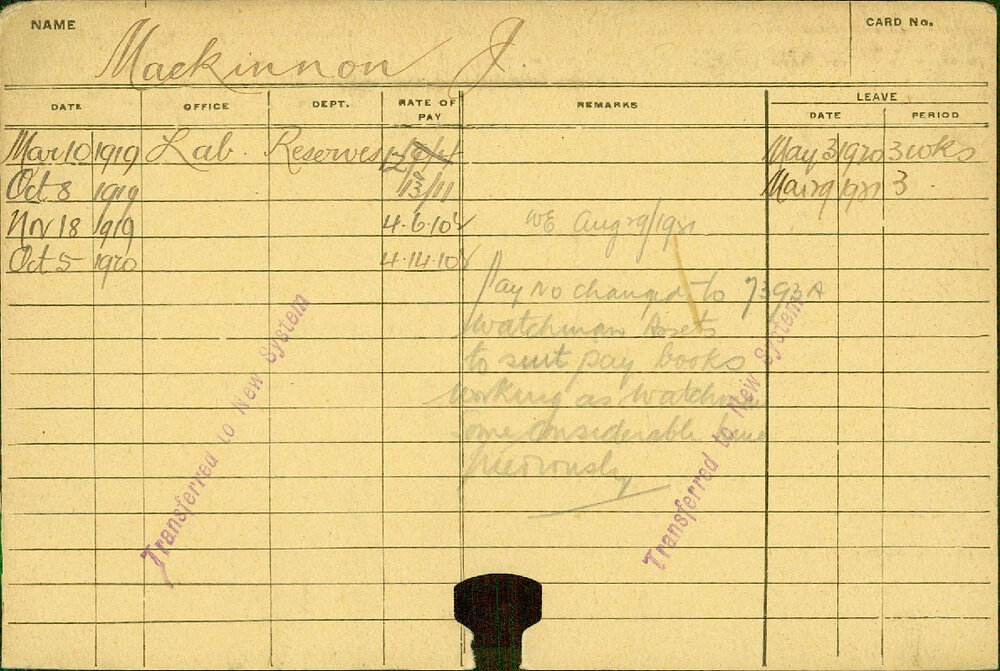 NAME
CARD No.
Mackinnon J.
DATE OFFICE DEPT. RATE OF PAY REMARKS LEAVE
DATE PERIOD
Mar 10 1919 Lab. Reserves May 3 1920 3 wks
Oct 8 1919 13/11 Mar 29 1921 3
Nov 18 1919 4.6.10½ WE Aug 29/1921
Oct 5 1920 4.14.10½
Pay No changed to 7393A
Watchman Assets
to suit pay books
working as watchman
some considerable time
previously
Transferred to New System
Transferred to New System